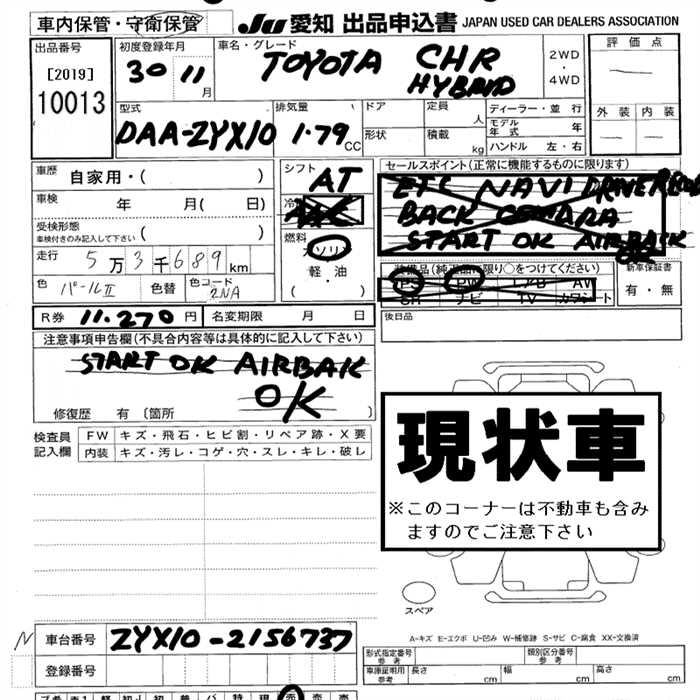 車内保管・守衛保管 JU 愛知 出品申込書 JAPAN USED CAR DEALERS ASSOCIATION
出品番号 初度登録年月 車名・グレード 評価点
[2019] 30 11月 TOYOTA CHR 2WD・4WD
10013 HYBRID
型式 排気量 ドア 定員 人 ディーラー・並行 外装 内装
DAA-ZYX10 1.79 CC 形状 積載 kg モデル年式 年
ハンドル 左・右
車歴 自家用・( ) シフト AT セールスポイント(正常に機能するものに限ります)
車検 年 月( 日) ETC NAVI
受検形態 ( ) BACK
車検付きのみ記入して下さい 燃料 ガソリン START OK AIRBAK
走行 5万3千689km 軽・油 OK
色 パールII 色替 色コード 2NA ( ) 装備品(純正品に限り○をつけてください) 新車保証書
PS PW エアB AW 有・無
SR ナビ TV カワシート
R券 11.270円 名変期限 月 日 後日品
注意事項申告欄(不具合内容等は具体的に記入して下さい)
START OK AIRBAK
OK
修復歴 有 〔箇所 〕
検査員記入欄 FW キズ・飛石・ヒビ割・リペア跡・X要
内装 キズ・汚レ・コゲ・穴・スレ・キレ・破レ
現状車
※このコーナーは不動車も含み
ますのでご注意下さい
スペア
N 車台番号 ZYX10-2156737
A-キズ E-エクボ U-凹み W-補修跡 S-サビ C-腐食 XX-交換済
登録番号 形式指定番号 参考 類別区分番号 参考
車庫証明用 参考 長さ cm 幅 cm 高さ cm